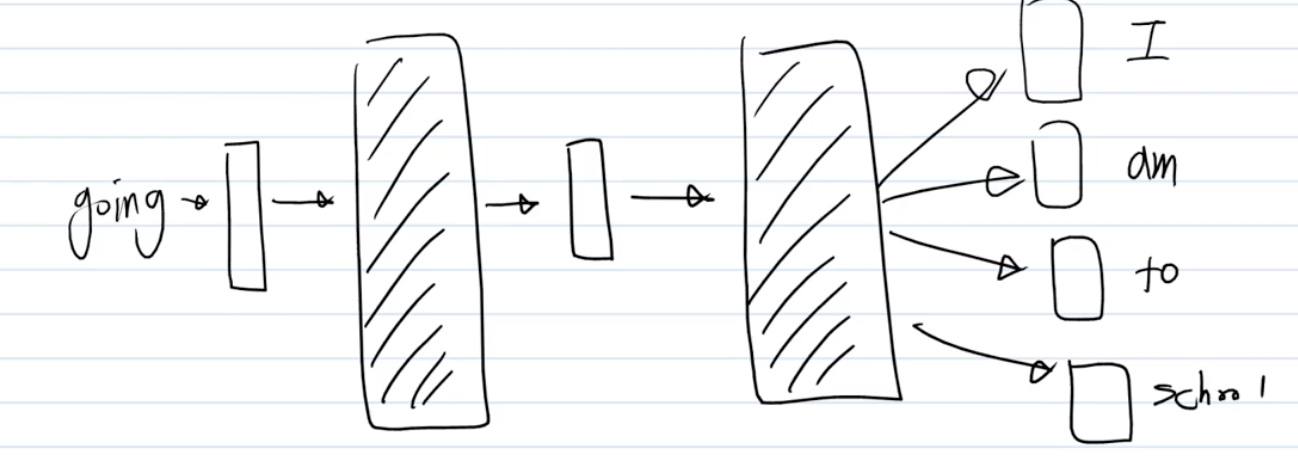 going
I
am
to
school